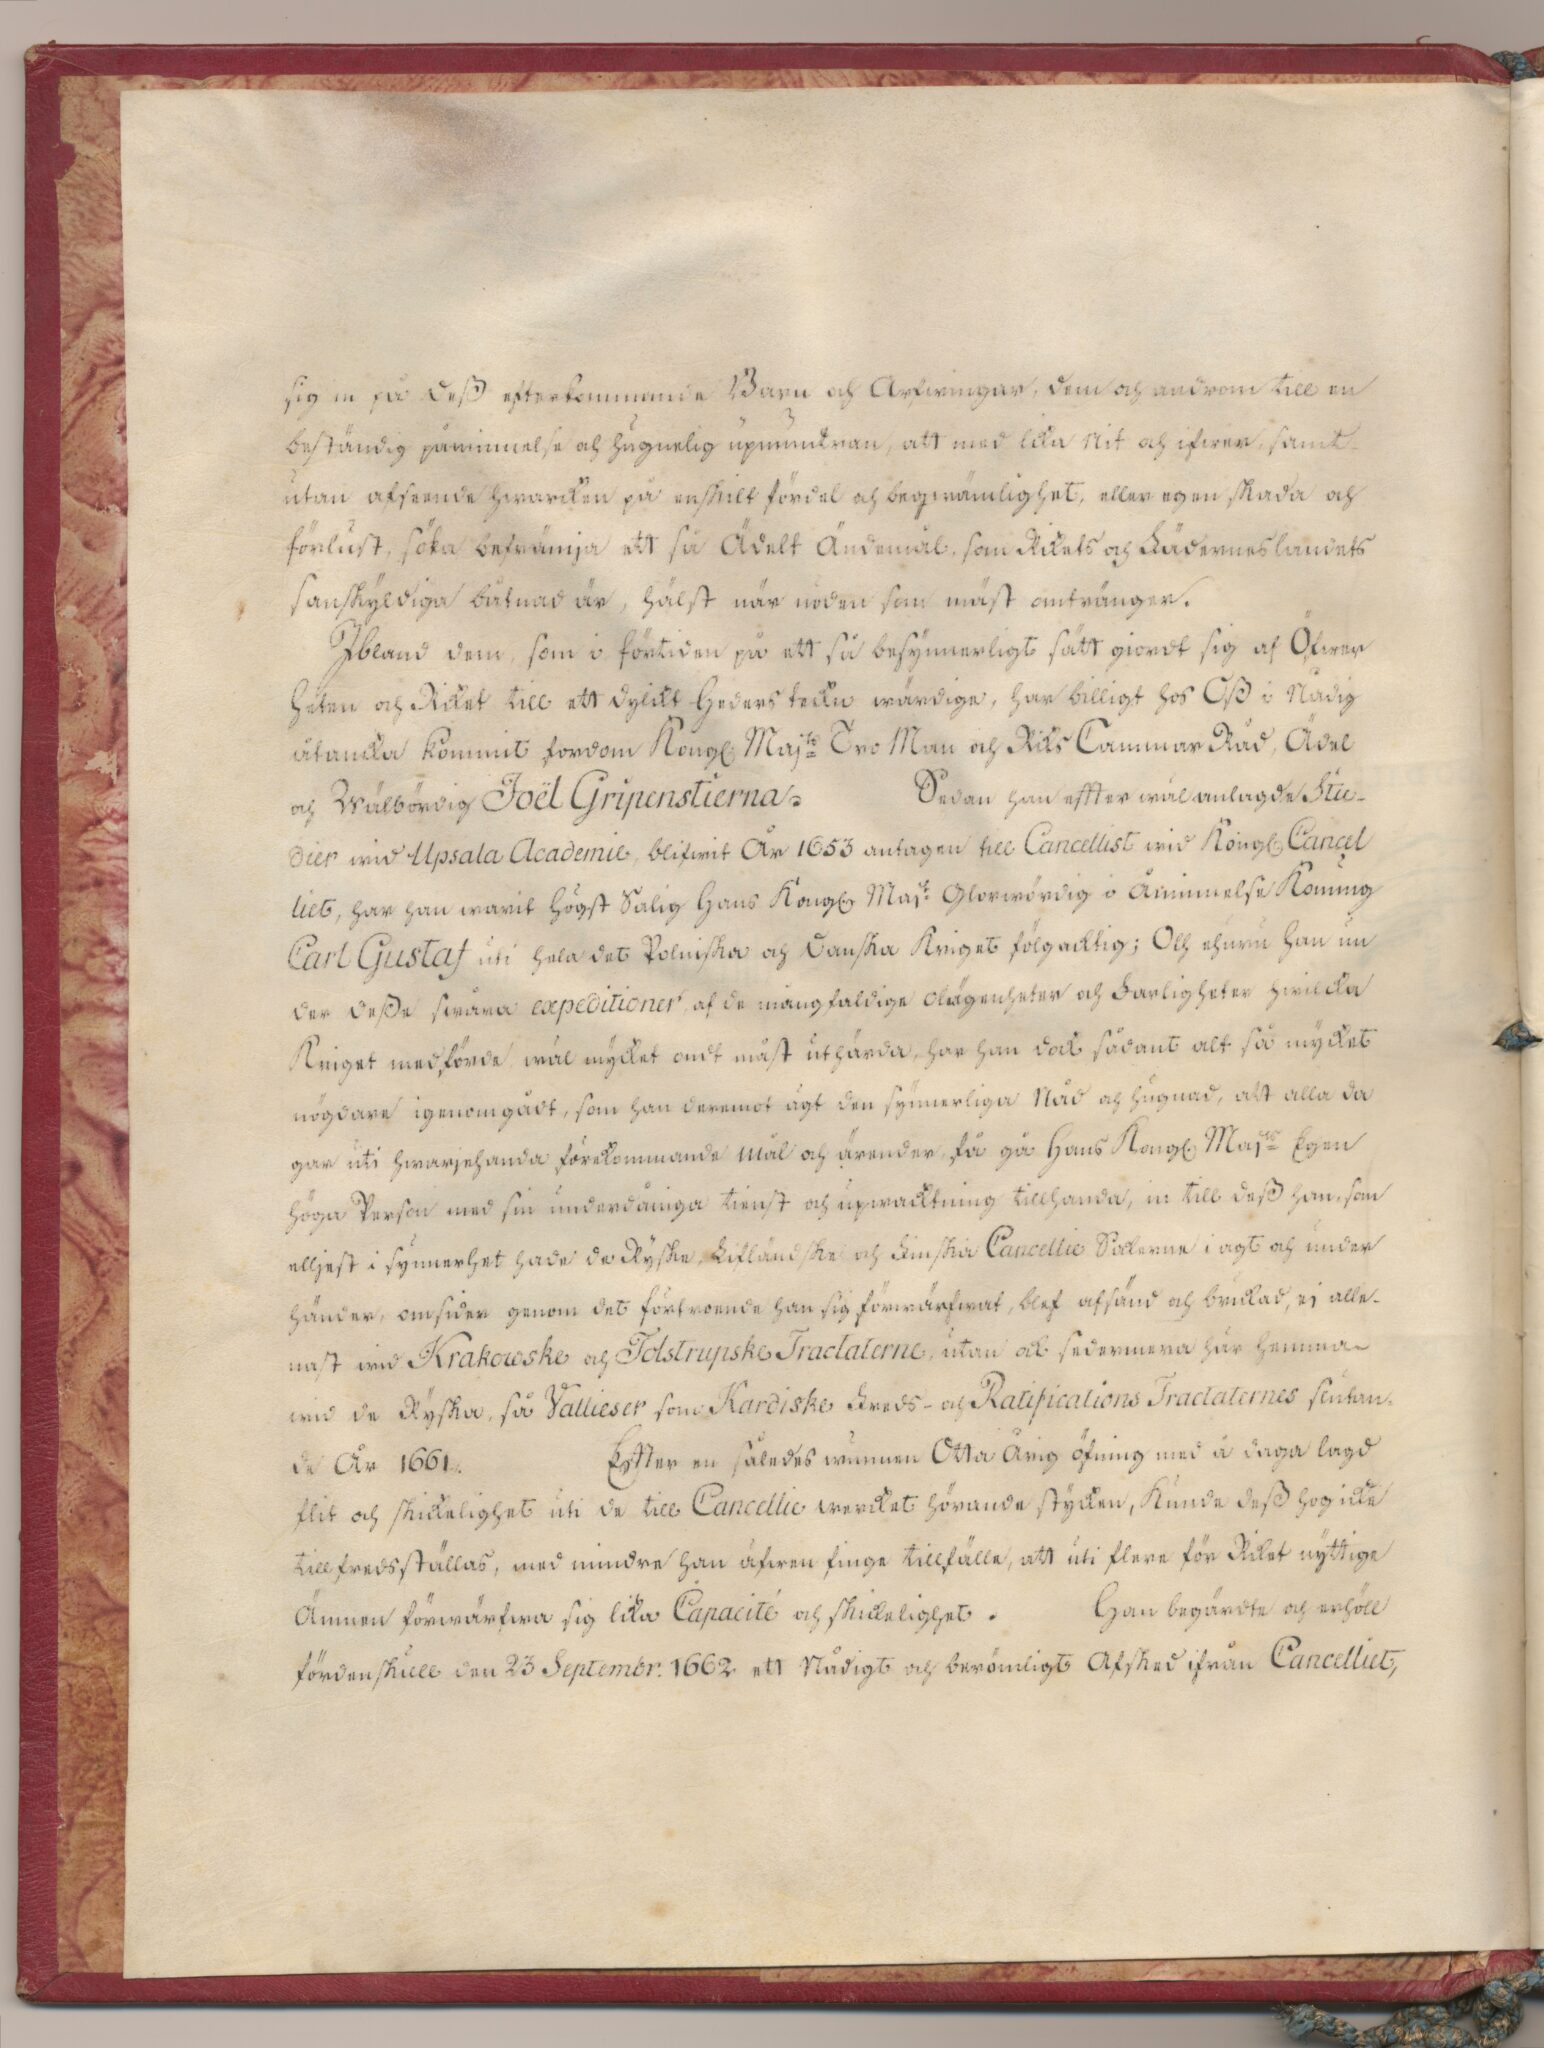 sig in på deß efterkommande Barn och Arfwingar, dem och androm till en
beständig påminnelse och hugnelig upmuntran, att med lika nit och ifwer, samt
utan afseende hwarcken på enskilt fördel och beqwämlighet, eller egen skada och
förlust, söka befrämja ett så Ädelt Ändemål, som Rikets och Fäderneslandets
sanskyldiga båtnad är, hälst när nöden som mäst antränger.
Ibland dem, som i förtiden på ett så besynnerligt sätt giordt sig af Öfwer
heten och Riket till ett dylikt Heders teckn wärdige, har billigt hos Oß i Nådig
åtancka kommit fordom Kongl. Maj:ts Tro Man och Riks Cammar Råd, Ädel
och Wälbördig Joël Gripenstierna. Sedan han effter wäl anlagde Stu-
dier wid Upsala Academie, blifwit År 1653 antagen till Cancellist wid Kongl. Cancel
liet, har han warit Högst Salig Hans Kongl. Maj:t Glorwördig i Åminnelse Konung
Carl Gustaf uti hela det Polniska och Danska Kriget fölgacktig; Och ehuru han un
der deße swåra expeditioner af de mångfaldige olägenheter och Farligheter hwilcka
Kriget medförde, wäl mycket ondt måst uthärda, har han dock sådant alt så mycket
nögdare igenomgådt, som han deremot ägt den synnerliga Nåd och hugnad, att alla da
gar uti hwarjehanda förekommande mål och ärender, få gå Hans Kongl. Maj:ts Egen
höga Person med sin underdåniga tienst och upwacktning tillhanda, in till deß han, som
elljest i synnerhet hade de Ryske, Lifländske och Finska Cancellie Sakerne i agt och under
händer, omsider genom det förtroende han sig förwärfwat, blef afsänd och brukad, ej alle-
nast wid Krakowske och Tolstrupske Tractaterne, utan ock sedermera här hemma
wid de Ryska, så Vallieser som Kardiske Freds- och Ratifications Tractaternes slutan-
de År 1661. Effter en således wunnen Otta Årig öfning med å daga lagd
flit och skickelighet uti de till Cancellie wercket hörande stycken, Kunde deß hog icke
tillfredsställas, med mindre han äfwen finge tillfälle, att uti flere för Riket nyttige
Ämnen förwärfwa sig lika Capacité och skickelighet. Han begärdte och erhöll
fördenskull den 23 Septembr. 1662 ett Nådigt och berömligt Afsked ifrån Cancelliet,